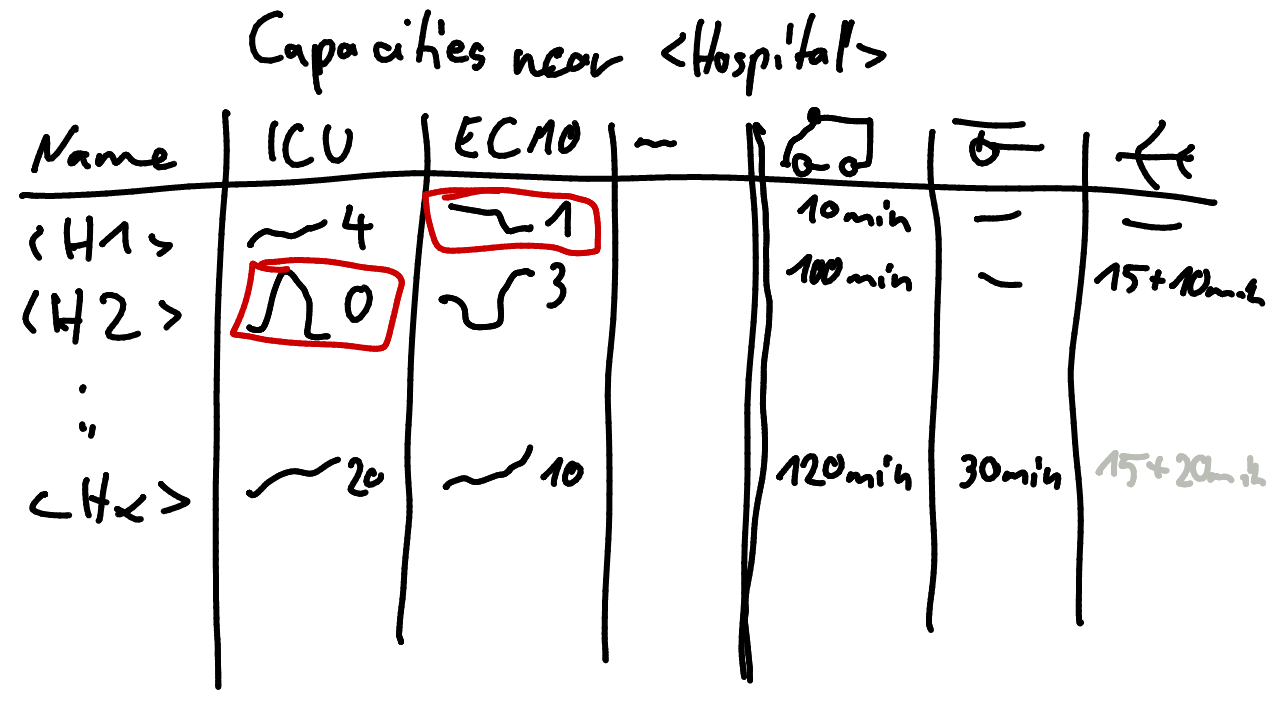 Capacities near <Hospital>
Name ICU ECMO
<H1> 4 1 10min
<H2> 0 3 100min 15+10min
<Hx> 20 10 120min 30min 15+20min